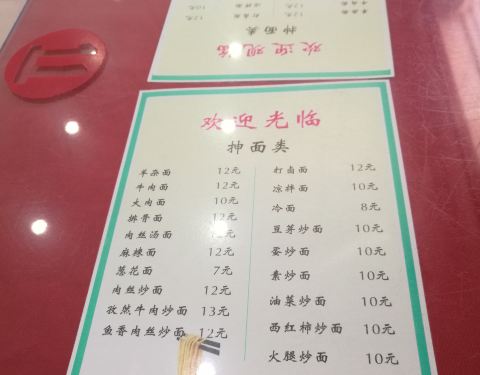 欢迎光临
抻面类
羊杂面 12元
牛肉面 12元
火肉面 10元
排骨面 12元
肉丝汤面 12元
麻辣面 12元
葱花面 7元
肉丝炒面 12元
孜然牛肉炒面 13元
鱼香肉丝炒面 12元
打卤面 12元
凉拌面 10元
冷面 8元
豆芽炒面 10元
蛋炒面 10元
素炒面 10元
油菜炒面 10元
西红柿炒面 10元
火腿炒面 10元
欢迎观临
抻面类